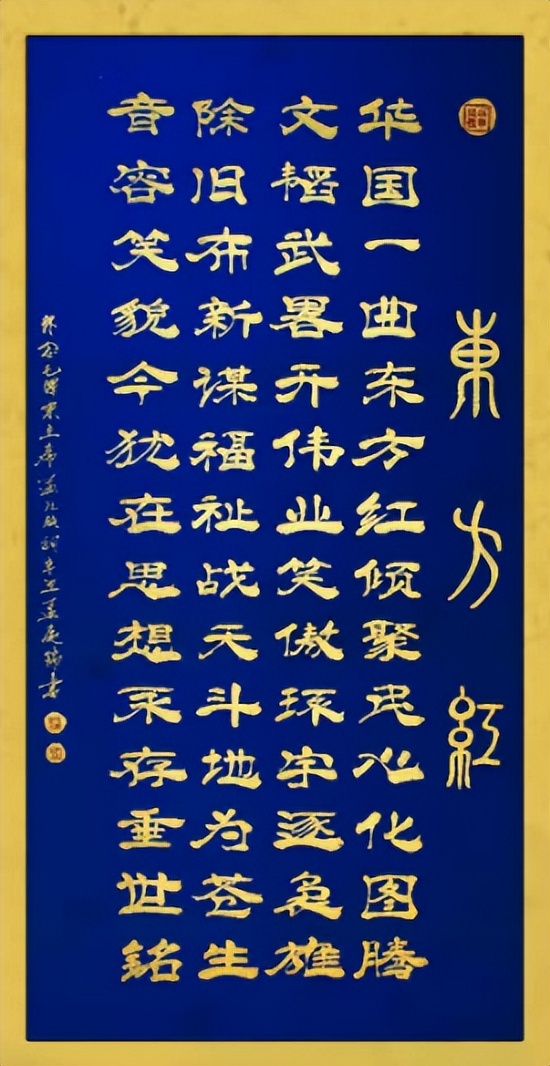 東方紅
华国一曲东方红倾聚民心化图腾
文韬武畧开伟业笑傲环宇逐枭雄
除旧布新谋福祉战天斗地为苍生
音容笑貌今犹在思想永存垂世銘
怀念毛澤東主席